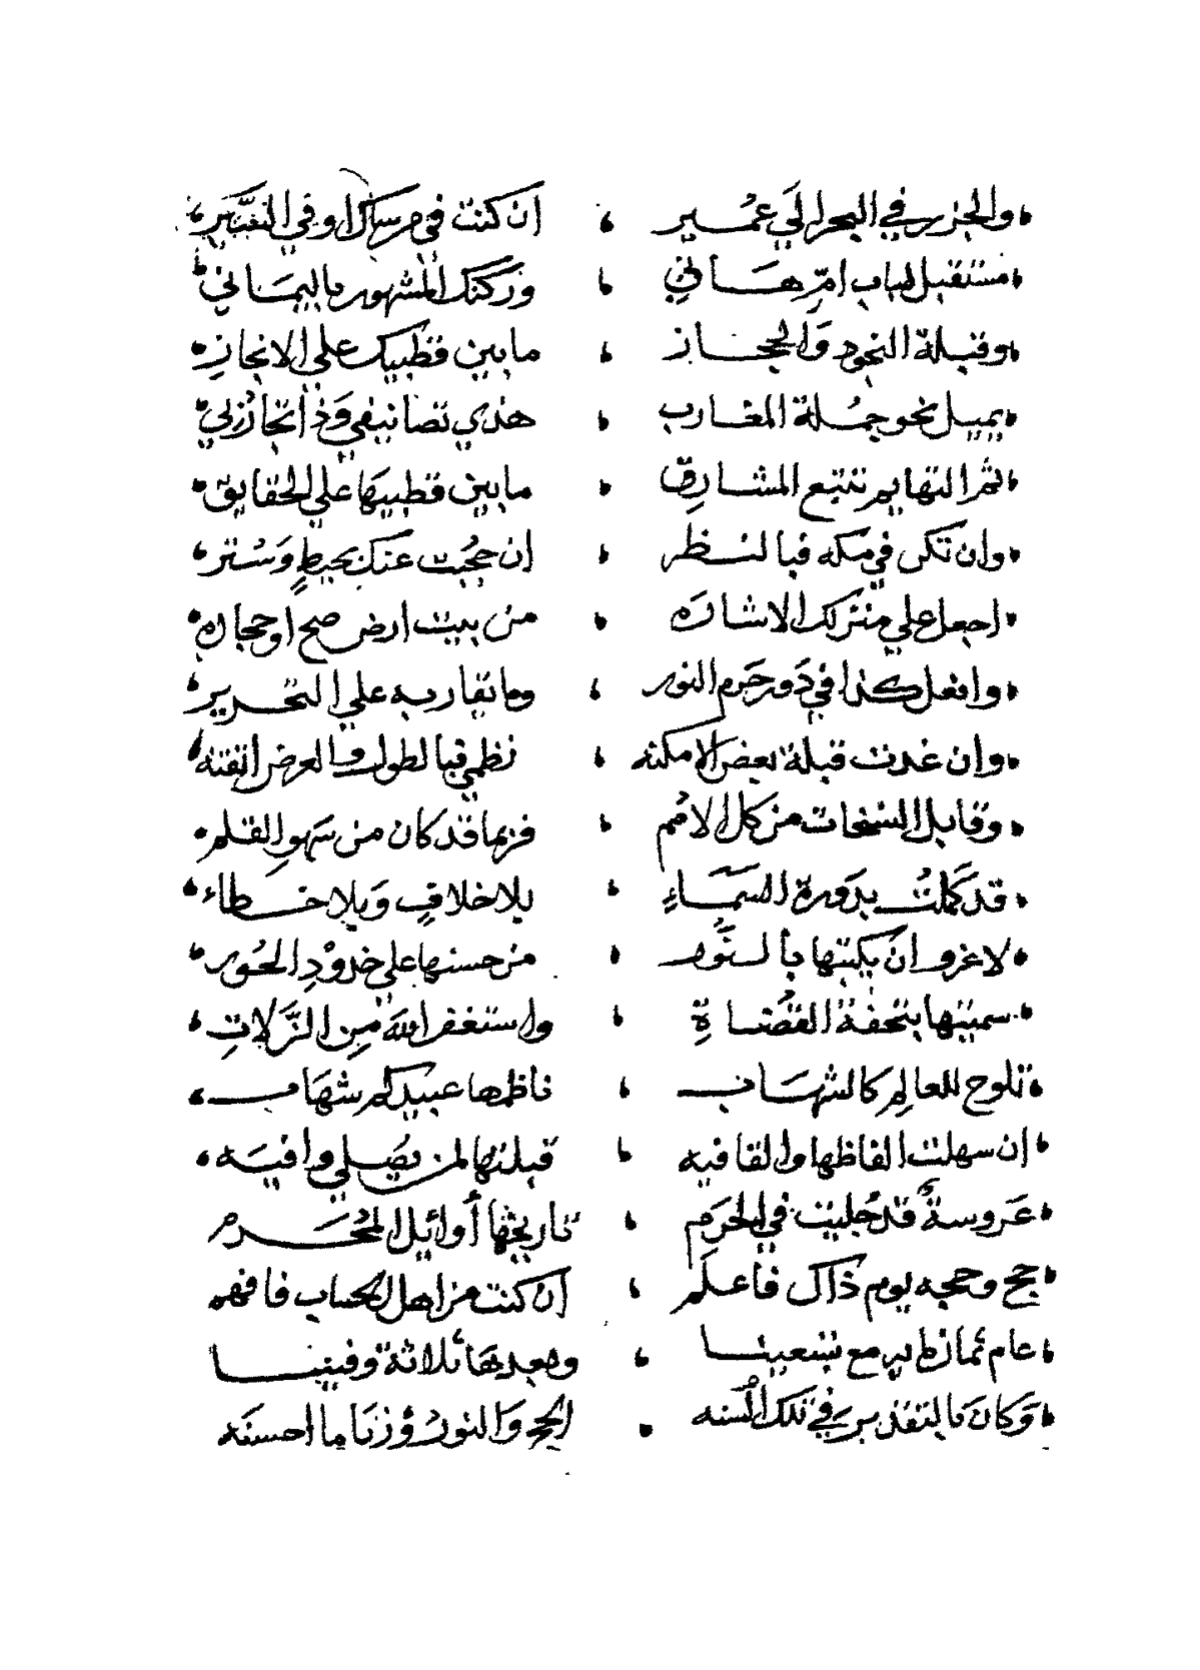 والجزر في البحر الي عمير ، ان كنت في مرساك او في السير
مستقبل لباب ام هاني ، وركنك المشهور باليماني
وقبلة النجود والحجاز ، ما بين قطبيك علي الانجاز
يميل نحو جملة المغارب ، هذي تصانيفي وذا تجاربي
ثم التهايم تتبع المشارق ، ما بين قطبيها علي الحقايق
وان تكن في مكه فبالنظر ، ان حجبت عنك بحيط وستر
اجعل علي منزلك الاشاره ، من بيت ارض صح او حجاره
وافعل كذا في دور حرم النور ، وما يقاربه علي التحرير
وان غدت قبلة بعض الامكنه ، نظمي فبالطول والعرض اتقنه
وقابل النسخات من كل الامم ، فربما قد كان من سهو القلم
قد كملت بدورة السماء ، بلا خلاف وبلا خطاء
لا غرو ان يكتبها بالنور ، من حسنها علي خدود الحور
سميتها بتحفة القضاة ، واستغفر الله من الزلات
تلوح للعالم كالشهاب ، ناظمها عبيدكم شهاب
ان سهلت الفاظها والقافيه ، قبلتها لمن يصلي وافيه
عروسة قد جليت في الحرم ، تاريخها أوائل المحرم
حج وحجه يوم ذاك فاعلم ، ان كنت من اهل الحساب فافهم
عام ثمان مع تسعينا ، وبعدها ثلاثة وفينا
وكان بالتقدير في تلك السنه ، الحج والنوروز نا ما احسنه